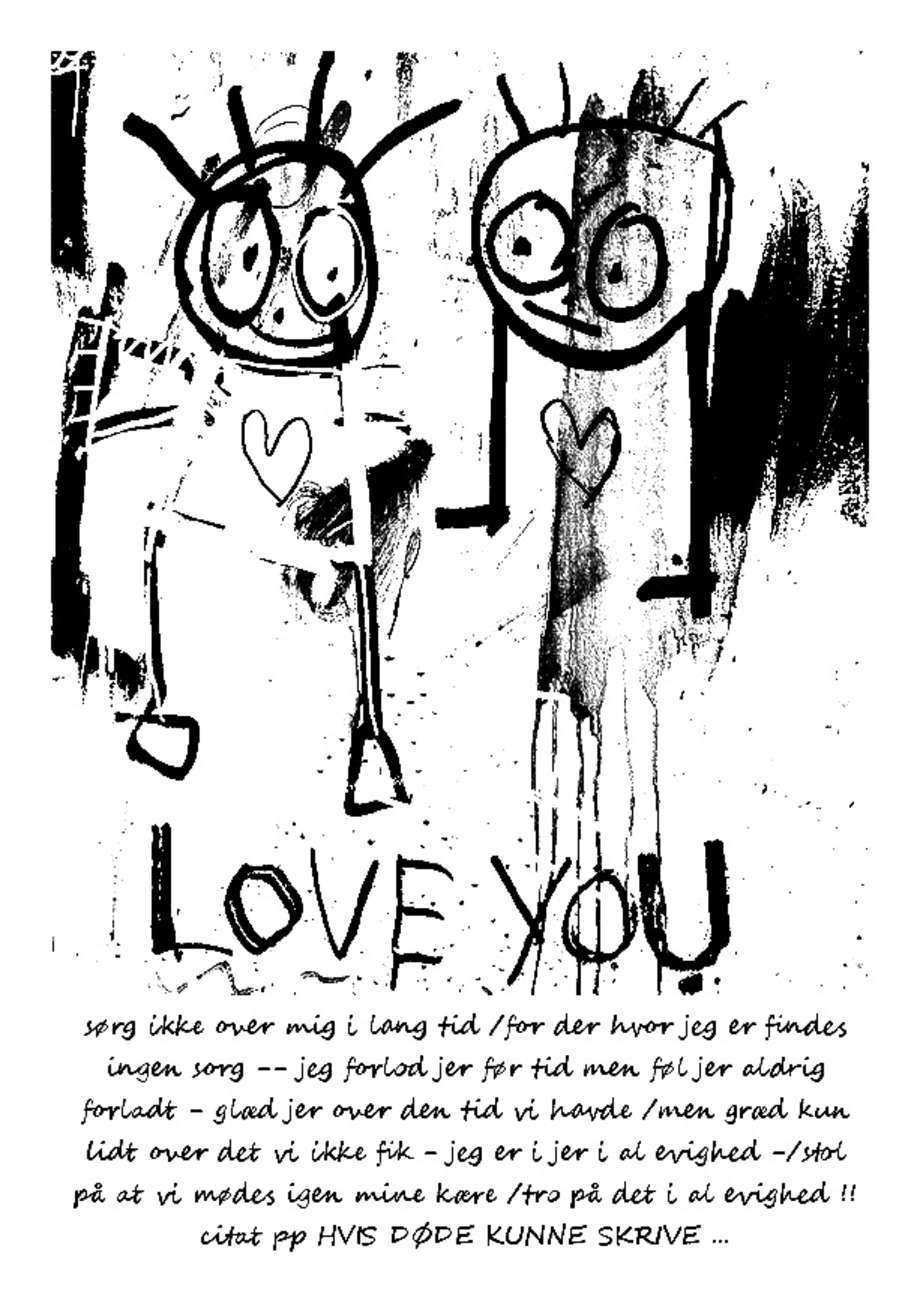 LOVE YOU
sørg ikke over mig i lang tid /for der hvor jeg er findes
ingen sorg -- jeg forlod jer før tid men føl jer aldrig
forladt - glæd jer over den tid vi havde /men græd kun
lidt over det vi ikke fik - jeg er i jer i al evighed -/stol
på at vi mødes igen mine kære /tro på det i al evighed !!
citat pp HVIS DØDE KUNNE SKRIVE ...